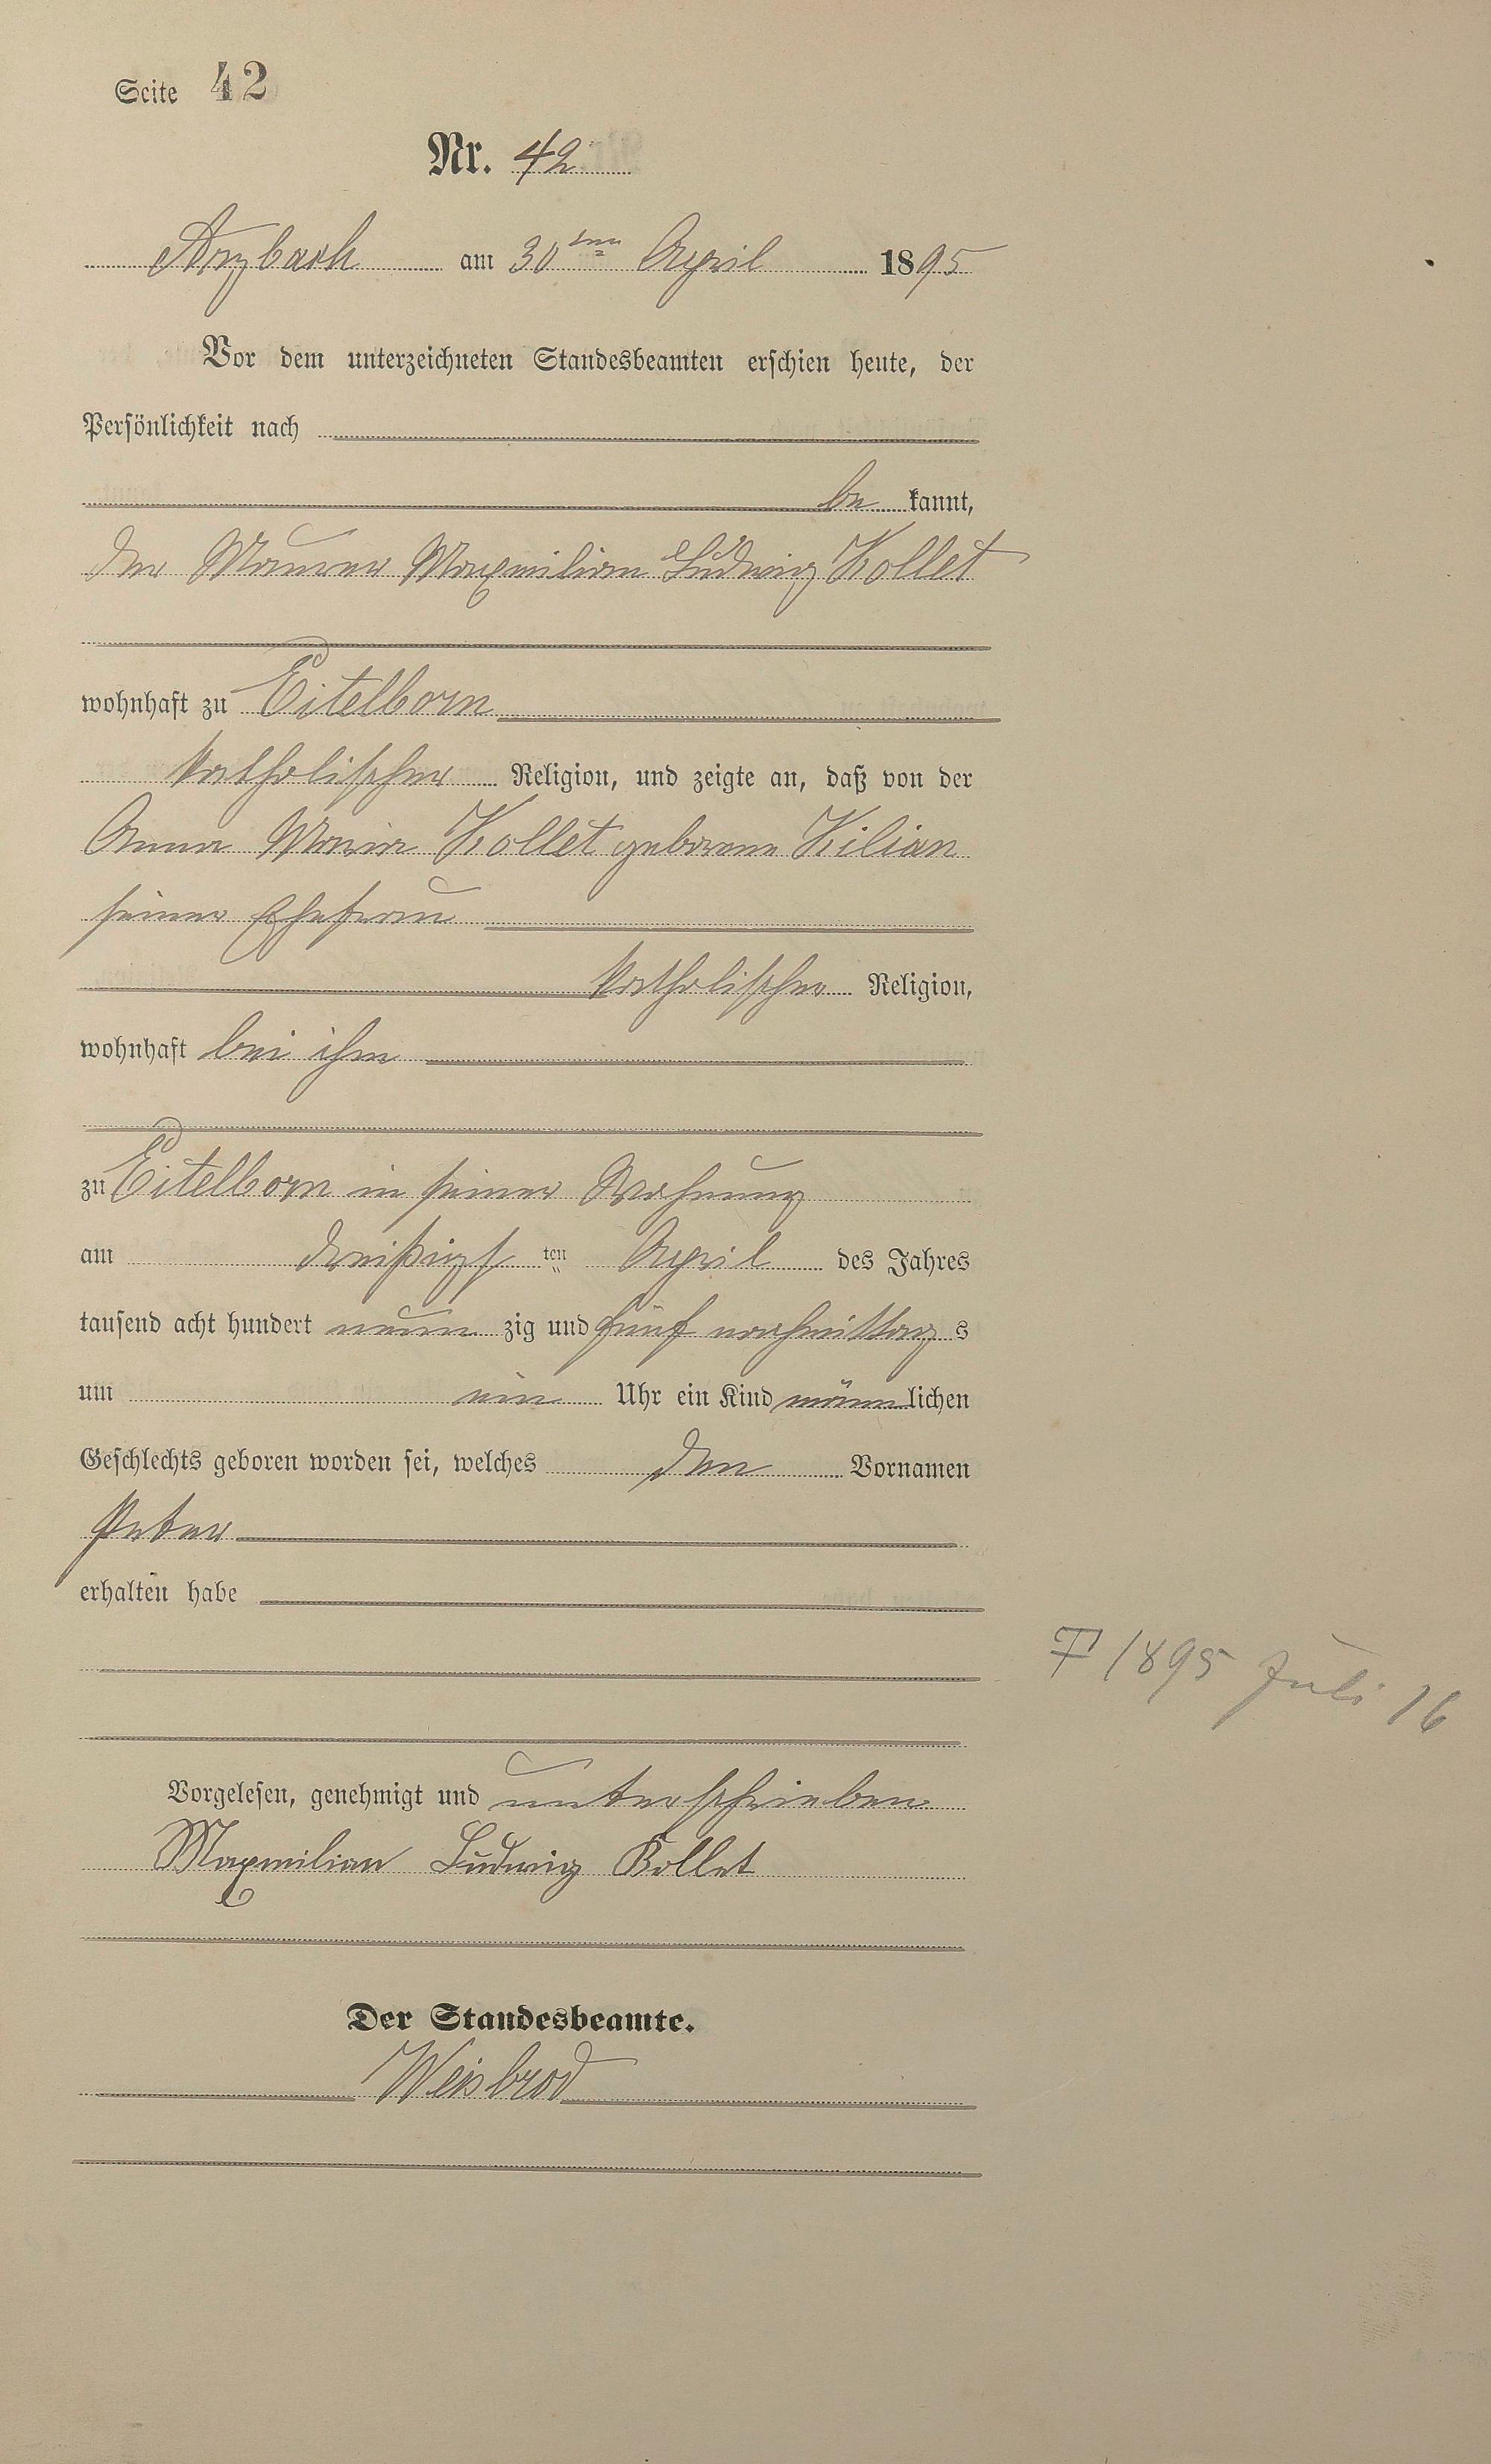 Seite 42
Nr. 42
Arzbach am 30ten April 1895
Vor dem unterzeichneten Standesbeamten erschien heute, der
Persönlichkeit nach
be kannt,
der Maurer Maxmilian Ludwig Kollet
wohnhaft zu Eitelborn
katholischer Religion, und zeigte an, daß von der
Anna Maria Kollet geborene Kilian
seiner Ehefrau
katholischer Religion,
wohnhaft bei ihm
zu Eitelborn in seiner Wohnung
am dreißigs ten April des Jahres
tausend acht hundert neun zig und fünf nachmittag s
um ein Uhr ein Kind männ lichen
Geschlechts geboren worden sei, welches den Vornamen
Peter
erhalten habe
† 1895 Juli 16
Vorgelesen, genehmigt und unterschrieben
Maxmilian Ludwig Kollet
Der Standesbeamte.
Weisbrod